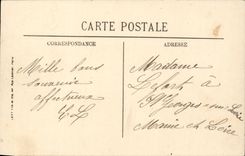 CARTE POSTALE
CORRESPONDANCE
ADRESSE
Mille bons
souvenirs
affectueux
Madame
Lefort à
St Georges-sur-Loire
Maine et Loire